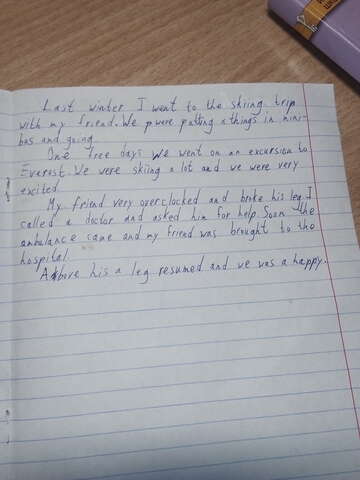 Last winter I went to the skiing trip
with my friend. We p were putting a things in mini-
bus and going.
One free days we went on an excursion to
Everost. We were skiing a lot and we were very
excited
My friend very overclocked and broke his leg. I
called a doctor and asked him for help. Soon the
ambalance came and my friend was brought to the
hospital.
Above his a leg resumed and we was a happy.